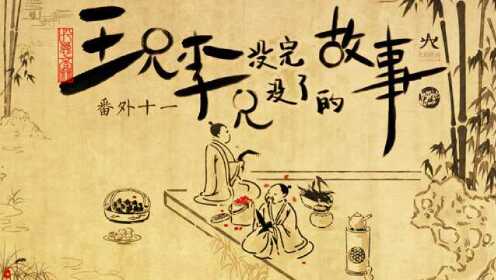 王兄李兄没完没了的故事
番外十一